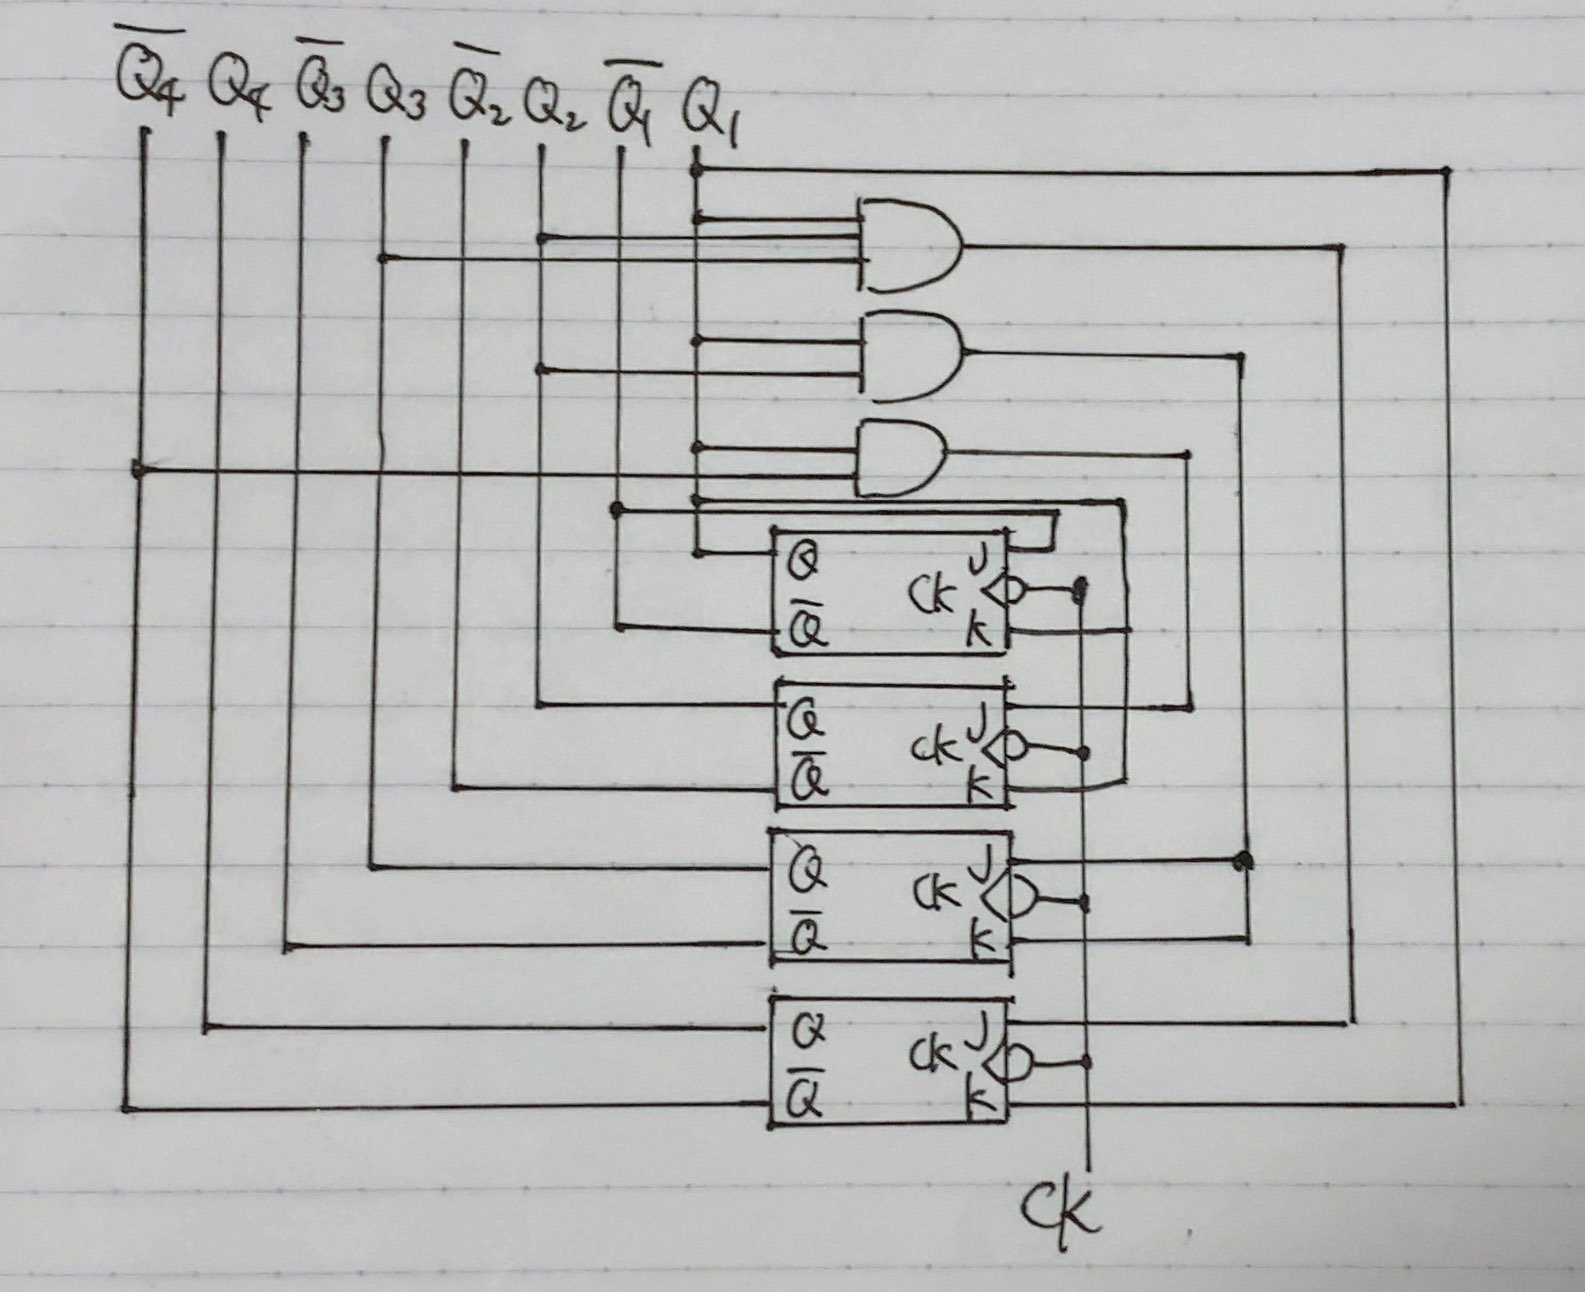 Q̅4 Q4 Q̅3 Q3 Q̅2 Q2 Q̅1 Q1
Q J
CK
Q̅ K
Q J
CK
Q̅ K
Q J
CK
Q̅ K
Q J
CK
Q̅ K
CK